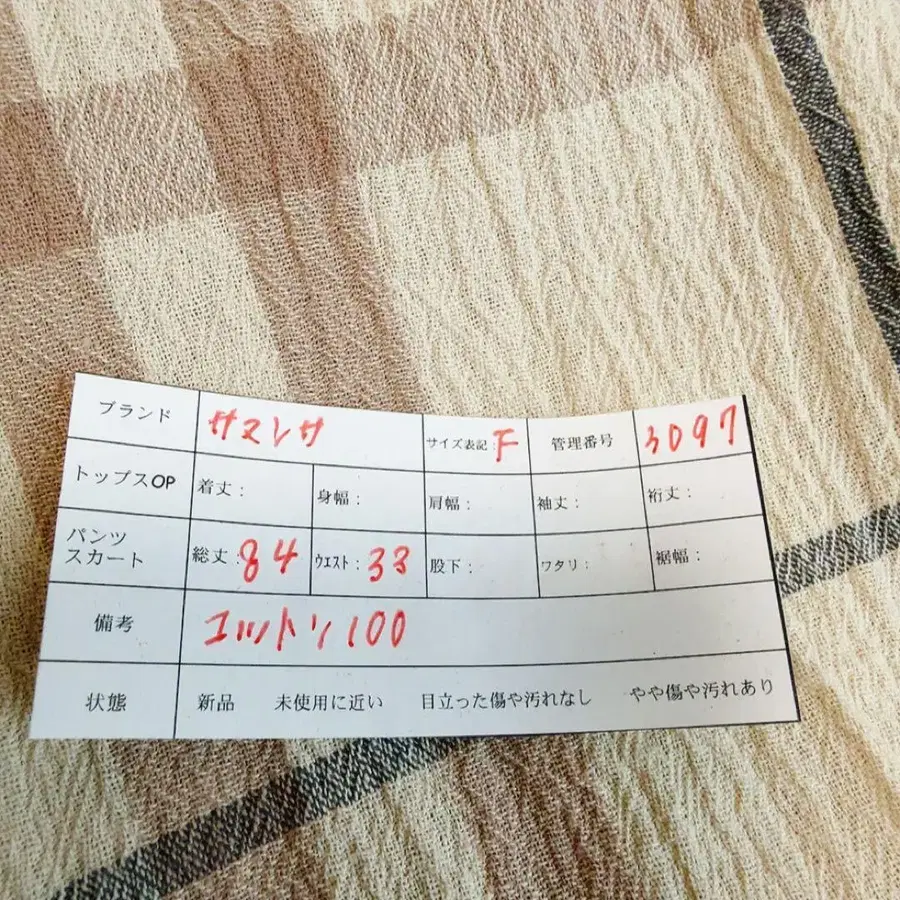 ブランド サマンサ サイズ表記：F 管理番号 3097
トップスOP 着丈： 身幅： 肩幅： 袖丈： 裄丈：
パンツ
スカート 総丈：84 ウエスト：33 股下： ワタリ： 裾幅：
備考 コットン100
状態 新品 未使用に近い 目立った傷や汚れなし やや傷や汚れあり